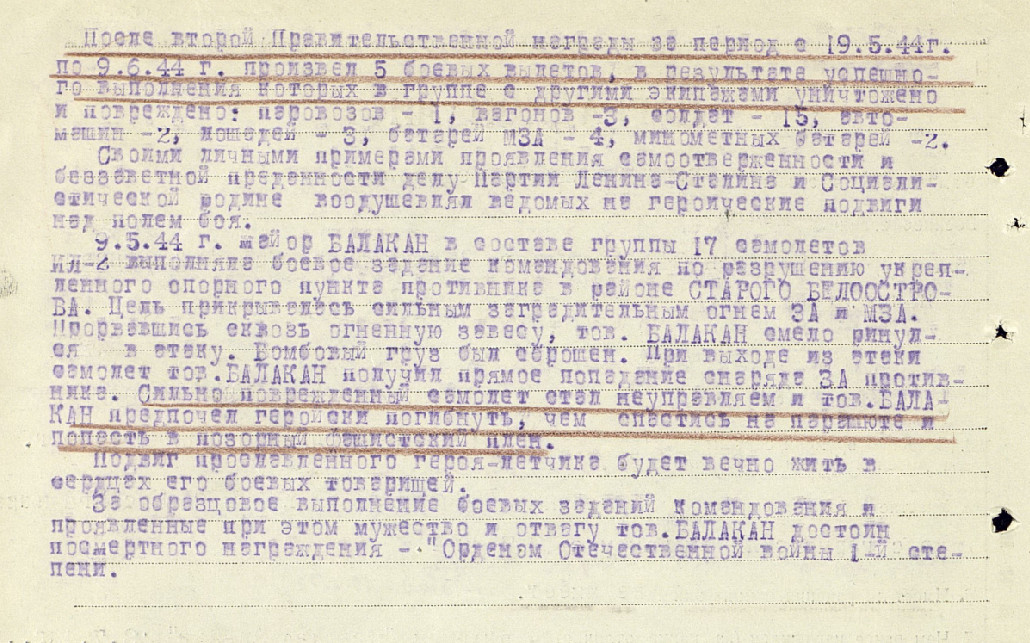 После второй Правительственной награды за период с 19.5.44г.
по 9.6.44 г. произвел 5 боевых вылетов, в результате успешно-
го выполнения которых в группе с другими экипажами уничтожено
и повреждено: паровозов - 1, вагонов -3, солдат - 15, авто-
машин -2, лошадей - 3, батарей МЗА - 4, минометных батарей -2.
Своими личными примерами проявления самоотверженности и
беззаветной преданности делу Партии Ленина-Сталина и Социали-
стической родине воодушевлял ведомых на героические подвиги
над полем боя.
9.5.44 г. майор БАЛАКАН в составе группы 17 самолетов
ИЛ-2 выполняла боевое задание командования по разрушению укреп-
ленного опорного пункта противника в районе СТАРОГО БЕЛООСТРО-
ВА. Цель прикрывалась сильным заградительным огнем ЗА и МЗА.
Прорвавшись сквозь огненную завесу, тов. БАЛАКАН смело ринул-
ся в атаку. Бомбовый груз был сброшен. При выходе из атаки
самолет тов.БАЛАКАН получил прямое попадание снаряда ЗА против-
ника. Сильно поврежденный самолет стал неуправляем и тов.БАЛА-
КАН предпочел геройски погибнуть, чем спастись на парашюте и
попасть в позорный фашистский плен.
Подвиг прославленного героя-летчика будет вечно жить в
сердцах его боевых товарищей.
За образцовое выполнение боевых заданий командования и
проявленные при этом мужество и отвагу тов.БАЛАКАН достоин
посмертного награждения - "Орденам Отечественной войны 1-й сте-
пени.